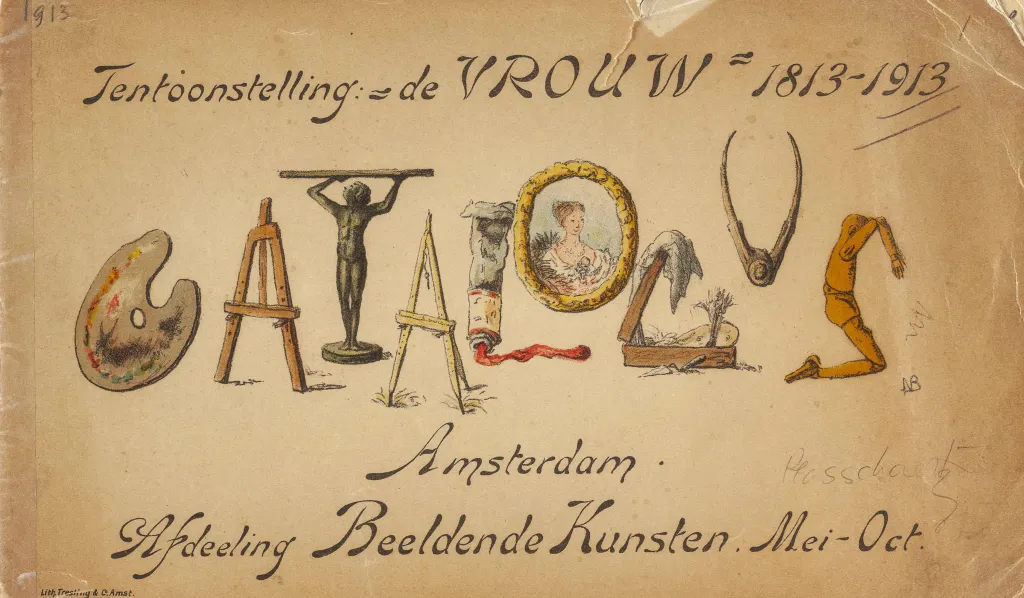 1913
Tentoonstelling:=de VROUW= 1813-1913
CATALOGUS
AB
Amsterdam.
Afdeeling Beeldende Kunsten. Mei-Oct.
Lith. Tresling & C. Amst.